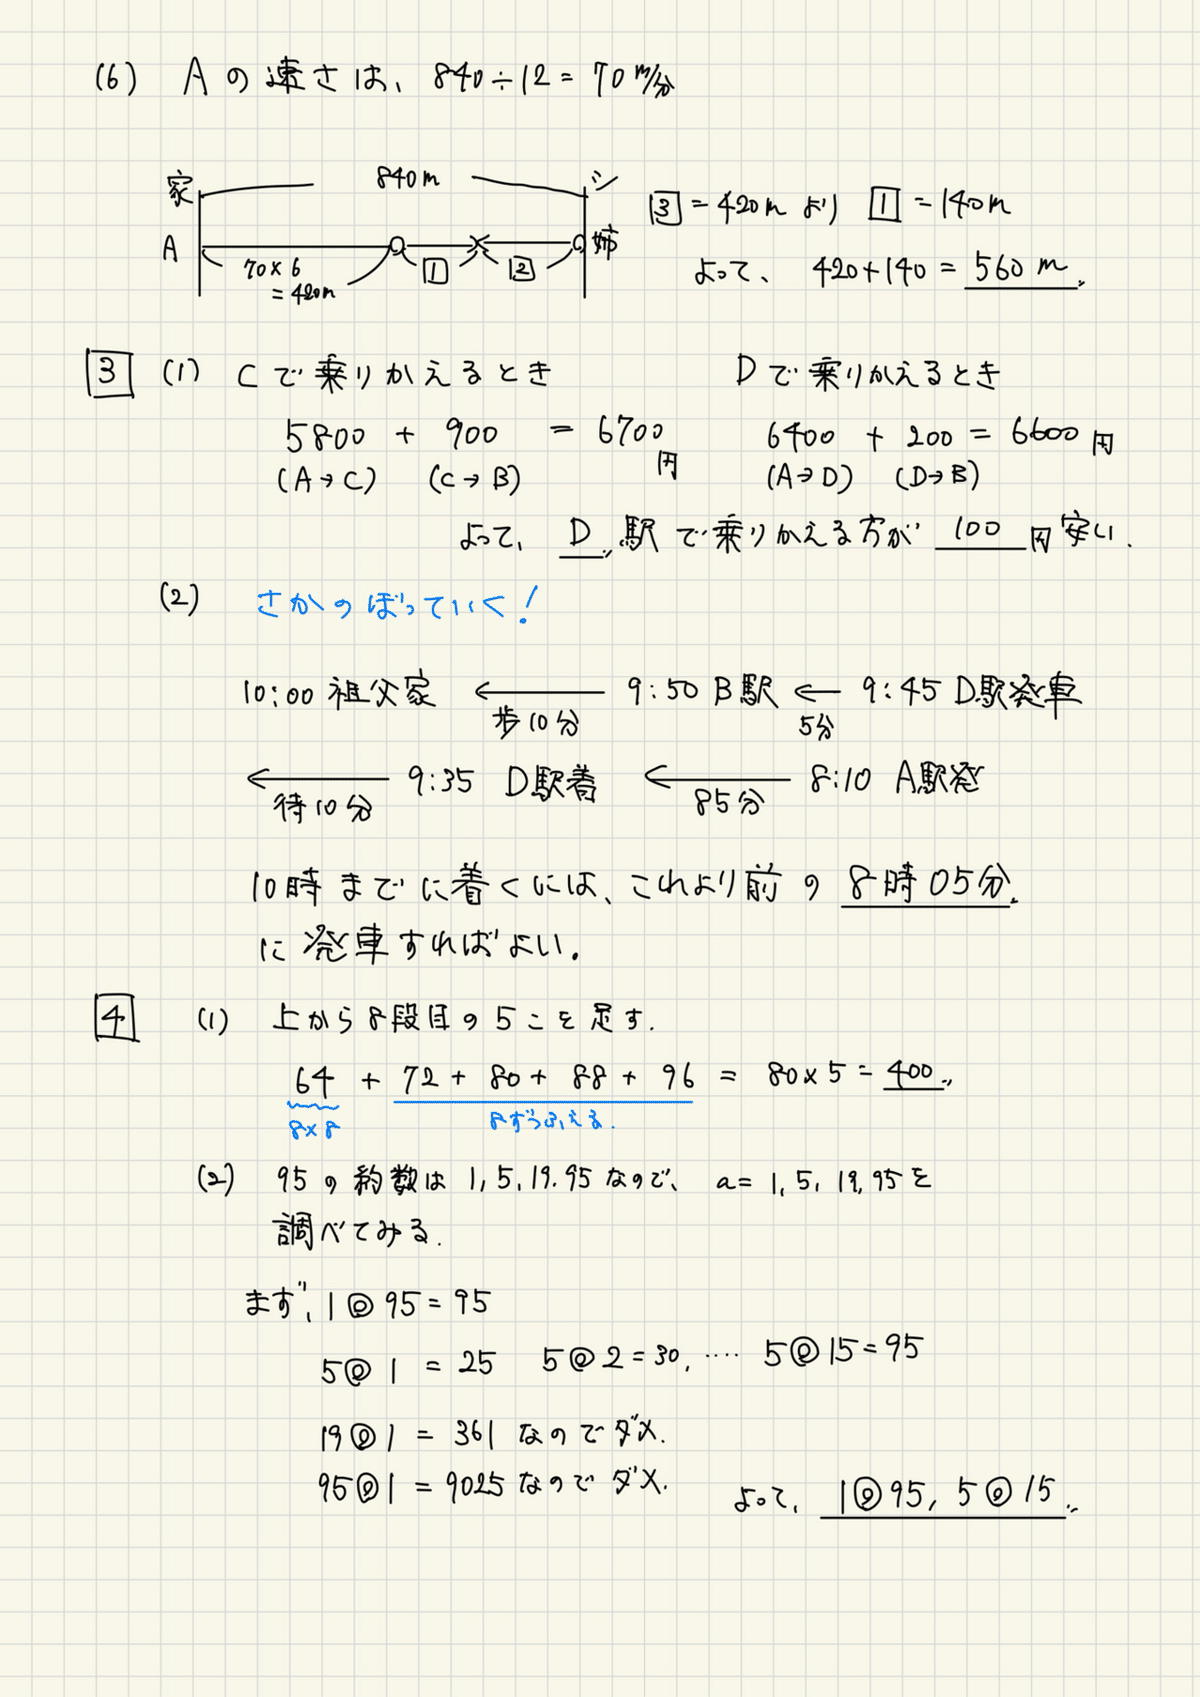 (6) Aの速さは、840÷12=70m/分
家 840m シ
A 姉
70×6
=420m
1 2
3=420mより 1=140m
よって、420+140=560m
3 (1) Cで乗りかえるとき Dで乗りかえるとき
5800 + 900 = 6700円 6400 + 200 = 6600円
(A→C) (C→B) (A→D) (D→B)
よって、D駅で乗りかえる方が 100円安い.
(2) さかのぼっていく!
10:00 祖父家 ← 9:50 B駅 ← 9:45 D駅発車
歩10分 5分
← 9:35 D駅着 ← 8:10 A駅発
待10分 85分
10時までに着くには、これより前の8時05分
に発車すればよい.
4 (1) 上から8段目の5こを足す.
64 + 72 + 80 + 88 + 96 = 80×5 = 400
8×8 8ずつふえる.
(2) 95の約数は1,5,19.95なので、a=1,5,19,95を
調べてみる.
まず、1◎95=95
5◎1 = 25 5◎2=30, ‥‥ 5◎15=95
19◎1 = 361 なのでダメ.
95◎1 = 9025 なのでダメ.
よって、1◎95, 5◎15